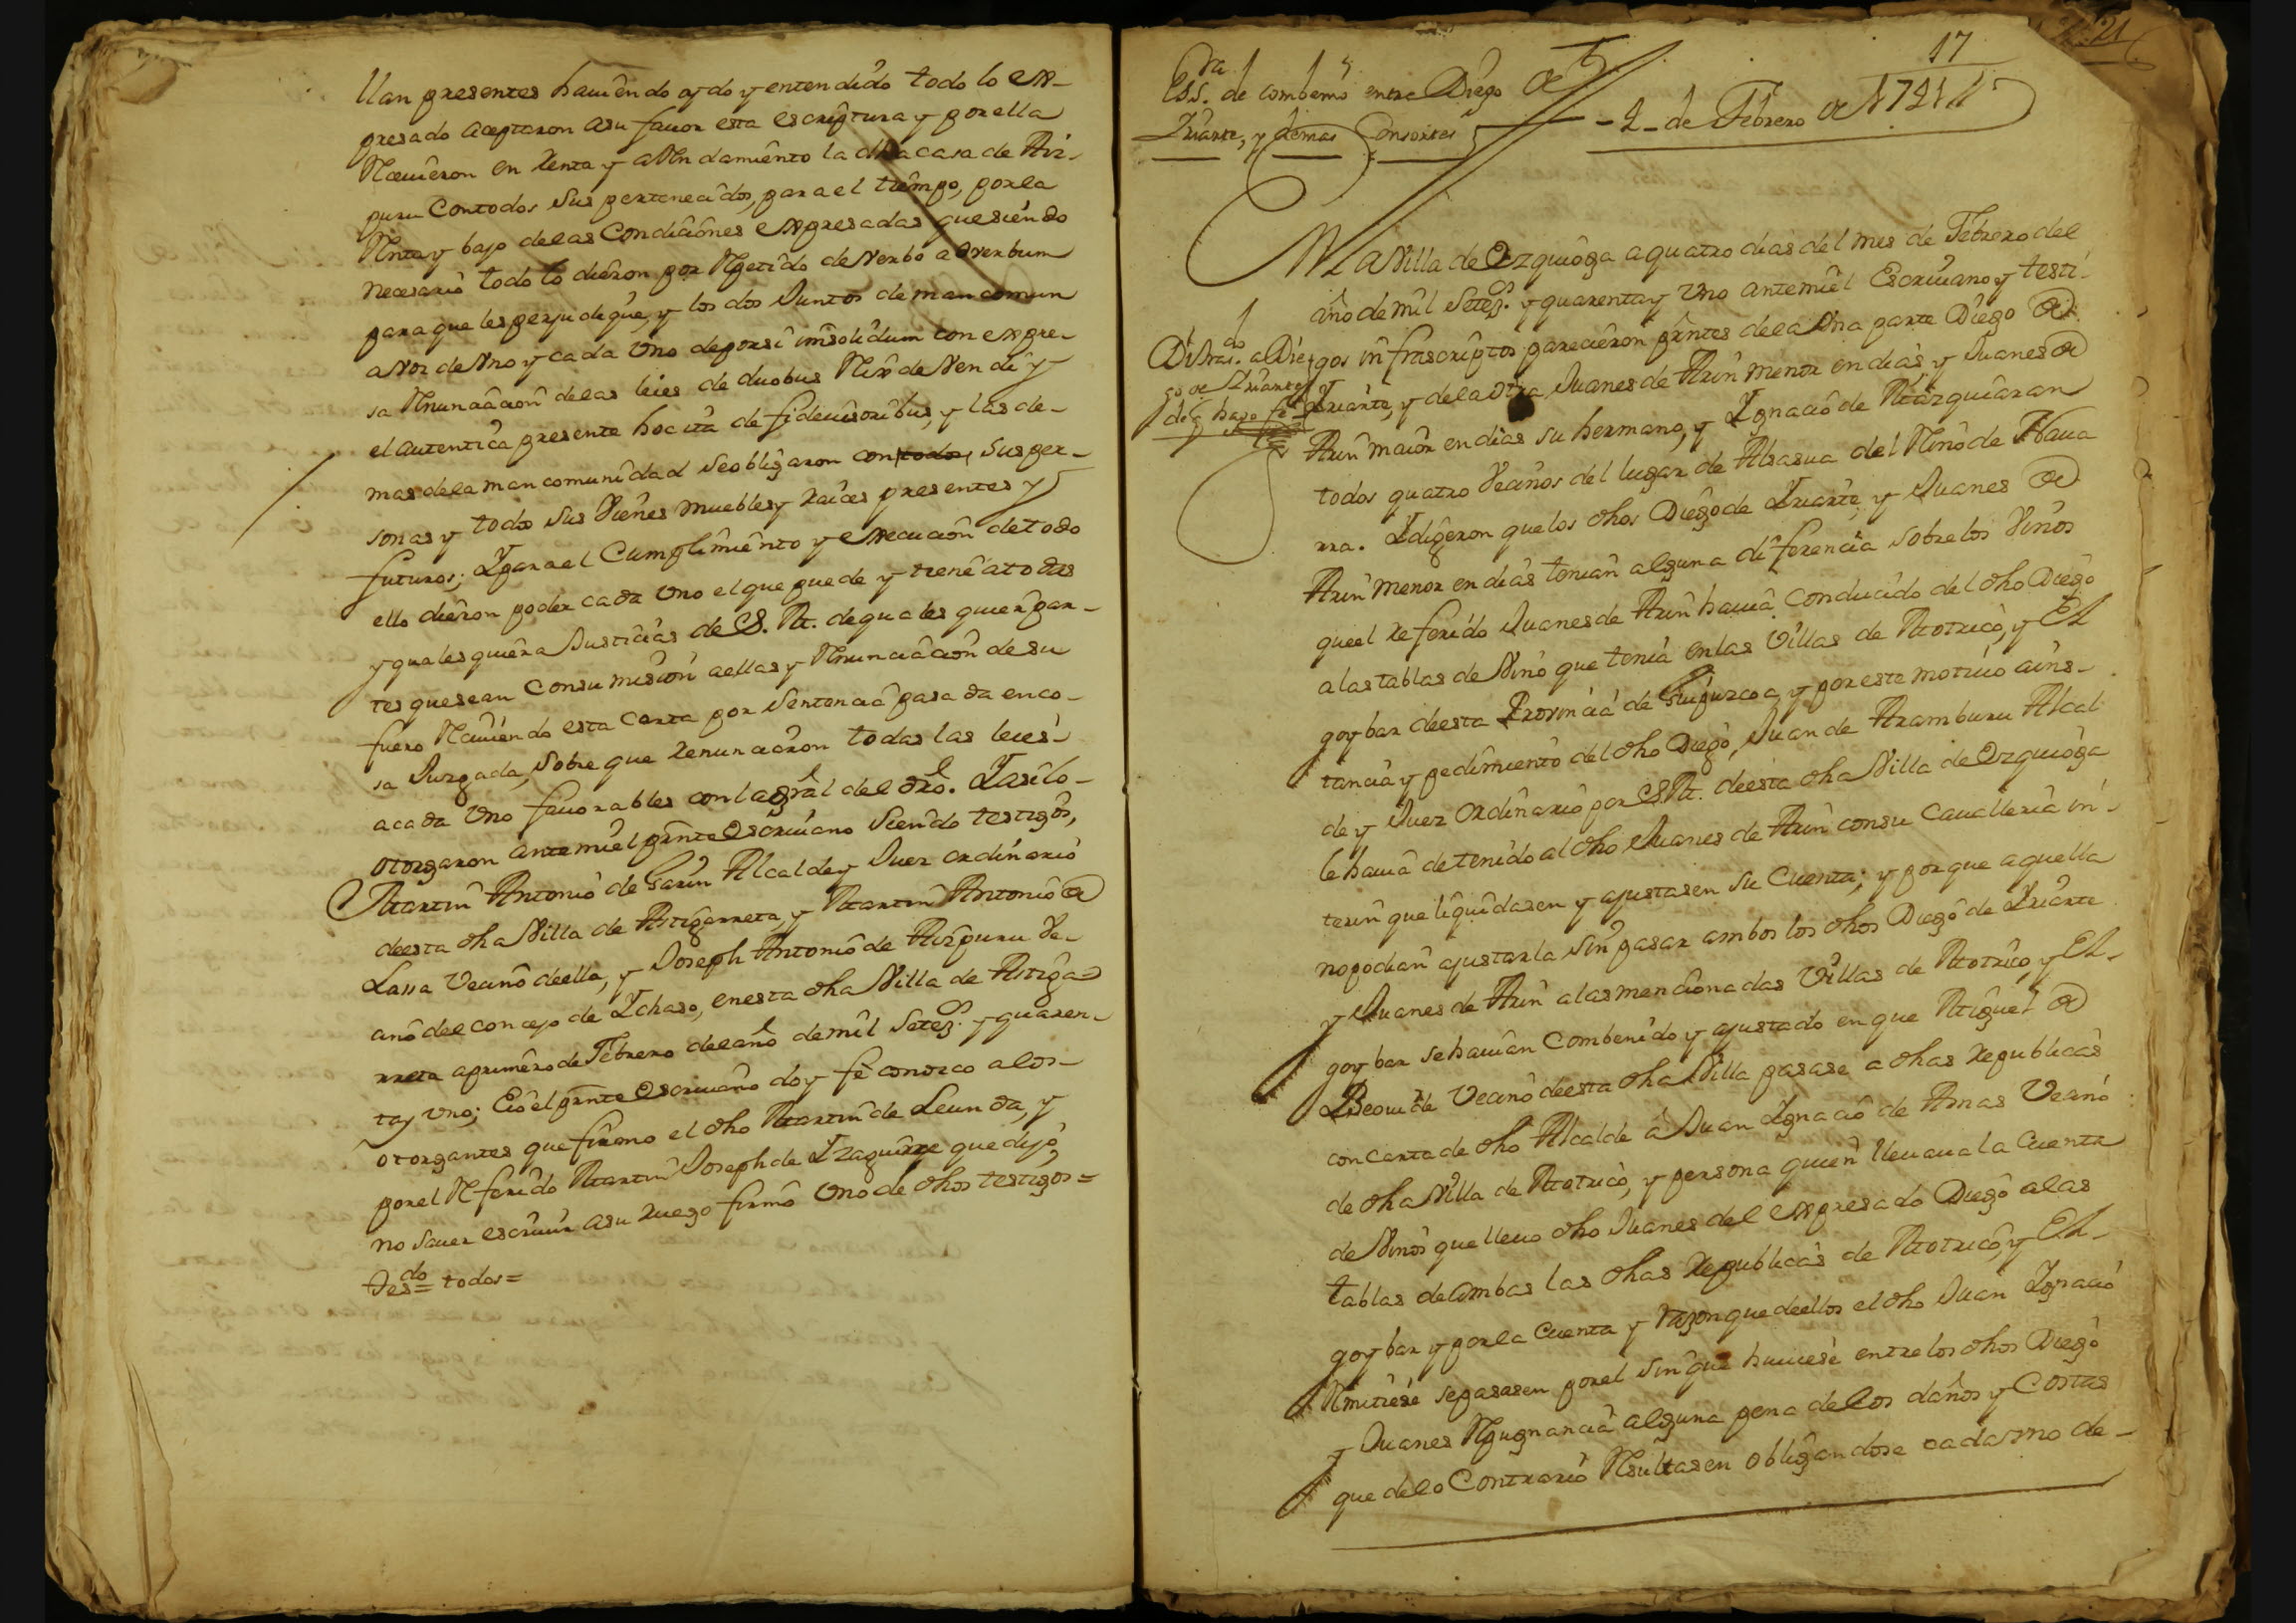 llan presentes hauiendo oydo y entendido todo lo ex-
presado aceptaron asu fauor esta escriptura y por ella
Reciuieron en Renta y arrendamiento la dha casa de Aiz-
puru Con todos sus pertenecidos, para el tiempo, por la
Renta y bajo de las Condiciones expresadas que siendo
necesario todo lo dieron por Repetido de verbo adverbum
para que les perjudique, y los dos Juntos de mancomun
a voz de vno y cada vno de por si insolidum con expre-
sa Renunciacion delas leies de duobus Rex de vendi y
el autentica presente hoc ita de fideiusoribus, y las de-
mas dela mancomunidad se obligaron con todos, sus per-
sonas y todos sus Vienes muebles y raices presentes y
futuros; Y para el Cumplimiento y execucion de todo
ello dieron poder cada vno el que puede y tiene a todas
y qualesquiera Justicias de S. M. de quales quier par-
tes que sean Con su mision a ellas y Renunciacion de su
fuero Reciuiendo esta Carta por Sentencia pasada en co-
sa Juzgada, Sobre que renunciaron todas las leies
a cada vno fauorables con la gral del dro. Y asi lo
otorgaron ante mi el prnte Escriuano siendo testigos,
Martin Antonio de Garin Alcalde y Juez ordinario
de esta dha Villa de Astigarreta, y Martin Antonio de
Lassa Vecino de ella, y Joseph Antonio de Aizpuru Ve-
cino del concejo de Ichaso, en esta dha Villa de Astiga-
rreta a primero de Febrero del año de mil Setezs. y quaren-
ta y vno; E io el prnte Escriuano doy fe conozco a los
otorgantes que firmo el dho Martin de Leunda, y
por el Referido Martin Joseph de Izaguirre que dijo,
no sauer escriuir a su ruego firmo vno de dhos testigos=
Tesdo= todos=
17
Essra. de combenio entre Diego de
Iriarte, y demas Consortes
-4- de Febrero de 1741
En La Villa de Ezquioga a quatro dias del mes de Febrero del
año de mil Setezs. y quarenta y vno ante mi el Escriuano y testi-
Di tras.do a Die-
go de Iriarte y
de q hago fe
gos infrascriptos parecieron prntes de la vna parte Diego de
Iriarte, y de la otra Juanes de Arin menor en dias y Juanes de
Arin maior en dias su hermano, y Ignacio de Mazquiaran
todos quatro Vecinos del lugar de Alsasua del Reino de Naua
rra. Y dijeron que los dhos Diego de Iriarte, y Juanes de
Arin menor en dias tenian alguna diferencia sobre los Vinos
que el referido Juanes de Arin hauia conducido del dho Diego
a las tablas de Vino que tenia en las Villas de Motrico, y El
goybar de esta Provincia de Guipuzcoa, y por este motiuo a ins-
tancia y pedimiento del dho Diego, Juan de Aramburu Alcal
de y Juez Ordinario por S. M. de esta dha Villa de Ezquioga
le hauia detenido al dho Juanes de Arin con su Caualleria in-
terin que liquidasen y ajustasen su Cuenta; y por que aquella
no podian ajustarla sin pasar ambos los dhos Diego de Iriarte
y Juanes de Arin a las mencionadas Villas de Motrico, y El-
goybar se hauian Combenido y ajustado en que Miguel de
Vecino de esta dha Villa pasase a dhas Republicas
con carta de dho Alcalde a Juan Ignacio de Arnas Vecino
de dha Villa de Motrico, y persona quien lleuaua la Cuenta
de Vinos que lleuo dho Juanes del expresado Diego a las
tablas de ambas las dhas Republicas de Motrico, y El-
goybar y por la Cuenta y razon que de ellos el dho Juan Ignacio
Remitiese se pasasen por el sin que huuiese entre los dhos Diego
y Juanes Repugnancia alguna pena de los daños y Costas
que de lo Contrario Resultasen obligandose cada vno de-